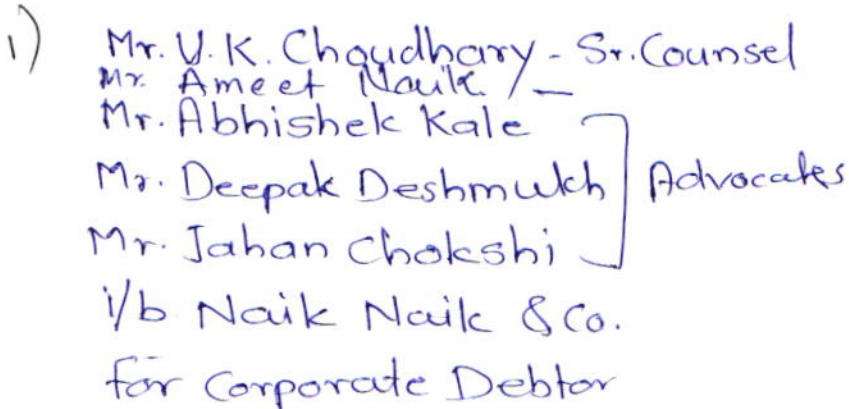 1) Mr. U.K. Choudhary - Sr. Counsel
Mr. Ameet Naik /-
Mr. Abhishek Kale
Mr. Deepak Deshmukh ] Advocates
Mr. Jahan Chokshi
i/b Naik Naik & Co.
for Corporate Debtor